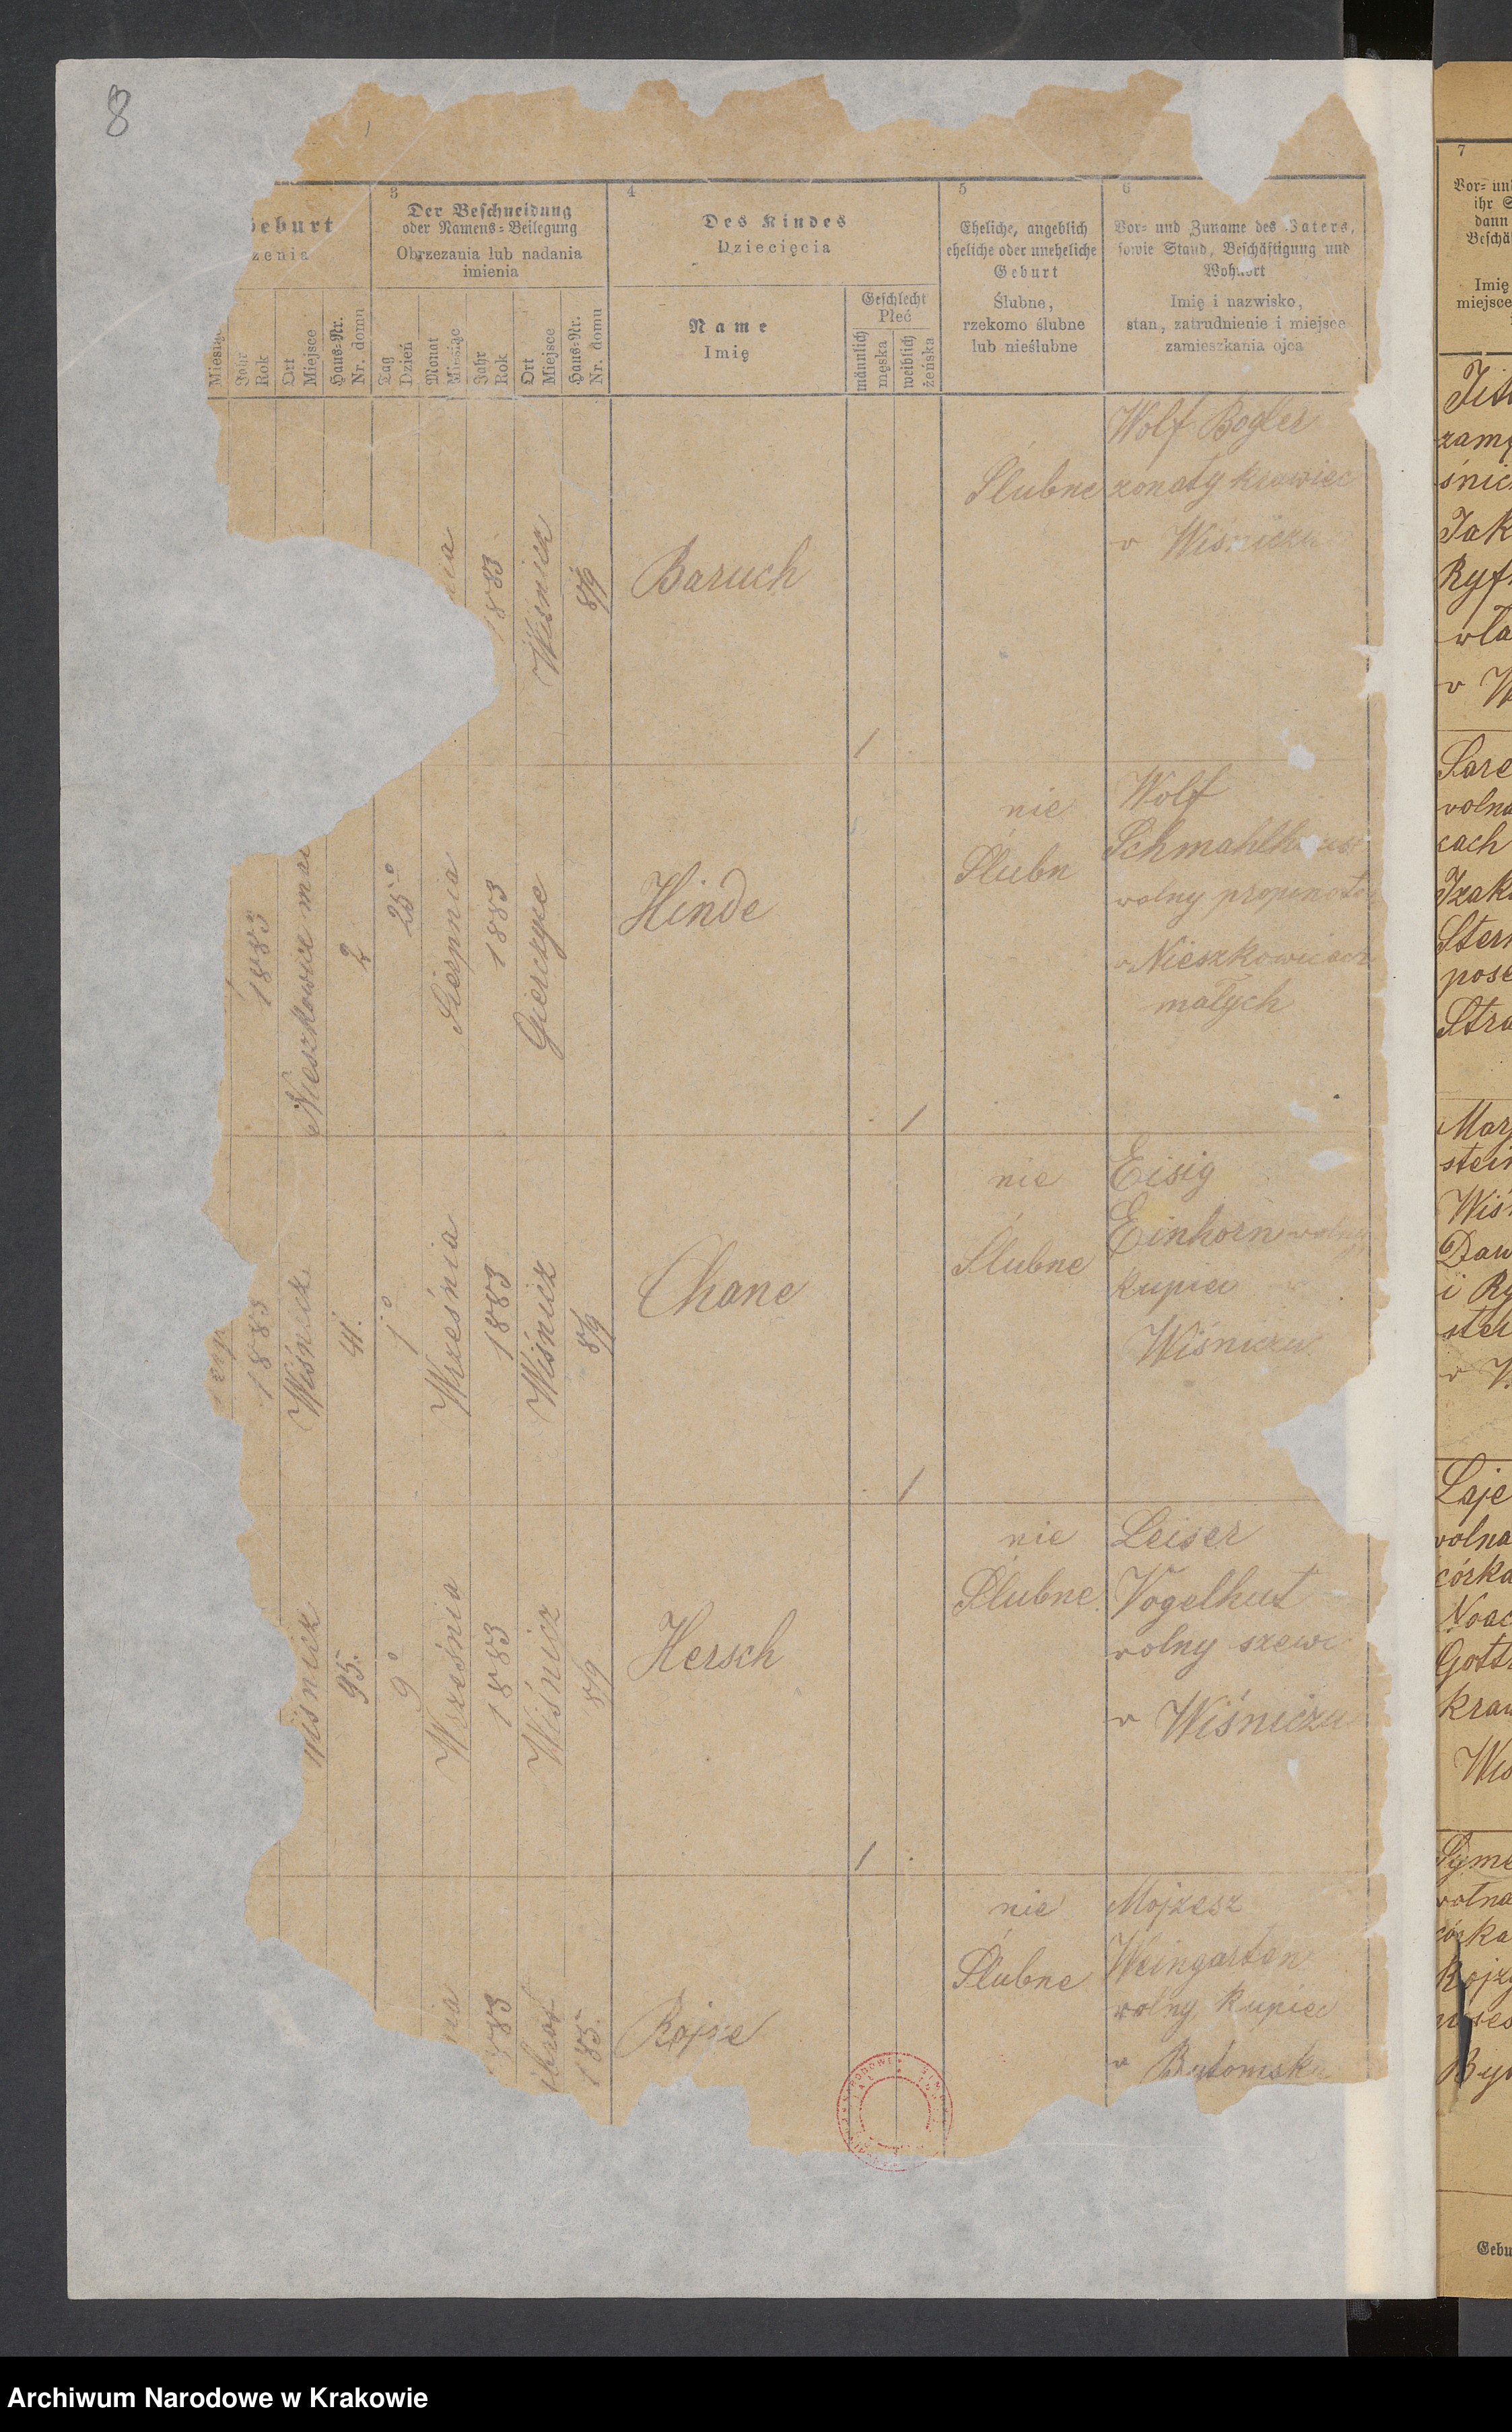 8
3
4
5
6
7
Geburt
zenia
Der Beschneidung
oder Namens-Beilegung
Obrzezania lub nadania
imienia
Des Kindes
Dziecięcia
Name
Imię
Geschlecht
Płeć
männlich
męska
weiblich
żeńska
Eheliche, angeblich
eheliche oder uneheliche
Geburt
Ślubne,
rzekomo ślubne
lub nieślubne
Vor- und Zuname des Vaters,
sowie Stand, Beschäftigung und
Wohnort
Imię i nazwisko,
stan, zatrudnienie i miejsce
zamieszkania ojca
Miesiąc
Jahr
Rok
Ort
Miejsce
Haus-Nr.
Nr. domu
Tag
Dzień
Monat
Miesiąc
Jahr
Rok
Ort
Miejsce
Haus-Nr.
Nr. domu
nia
1883
Wiśnicz
8/9
Baruch
1
Ślubne
Wolf Bogler
żonaty krawiec
w Wiśniczu
1883
Nieszkowice mał
2
25°
Sierpnia
1883
Gierczyce
Hinde
1
nie
Ślubn
Wolf
Schmahlhaus
wolny propinator
w Nieszkowicach
małych
1883
Wiśnicz
41.
1°
Września
1883
Wiśnicz
8/9
Chane
1
nie
Ślubne
Eisig
Einhorn wolny
kupiec w
Wiśniczu
Wiśnicz
95.
9°
Września
1883
Wiśnicz
8/9
Hersch
1
nie
Ślubne
Leiser
Vogelhut
wolny szewc
w Wiśniczu
nia
883
185.
Rojze
nie
Ślubne
Mojzesz
Weingarten
wolny kupiec
w Bytomsku
Vor- und
ihr S
dann
Beschä
Imię
miejsce
zamę
śnic
Jak
Ryf
wła
w W
Sare
wolna
cach
Izak
Stern
pose
Stra
Mar
stein
Wiś
Daw
i Ry
w W
Laje
wolna
córka
Noac
Gott
kraw
Wiś
wolna
córka
Gebu
Archiwum Narodowe w Krakowie